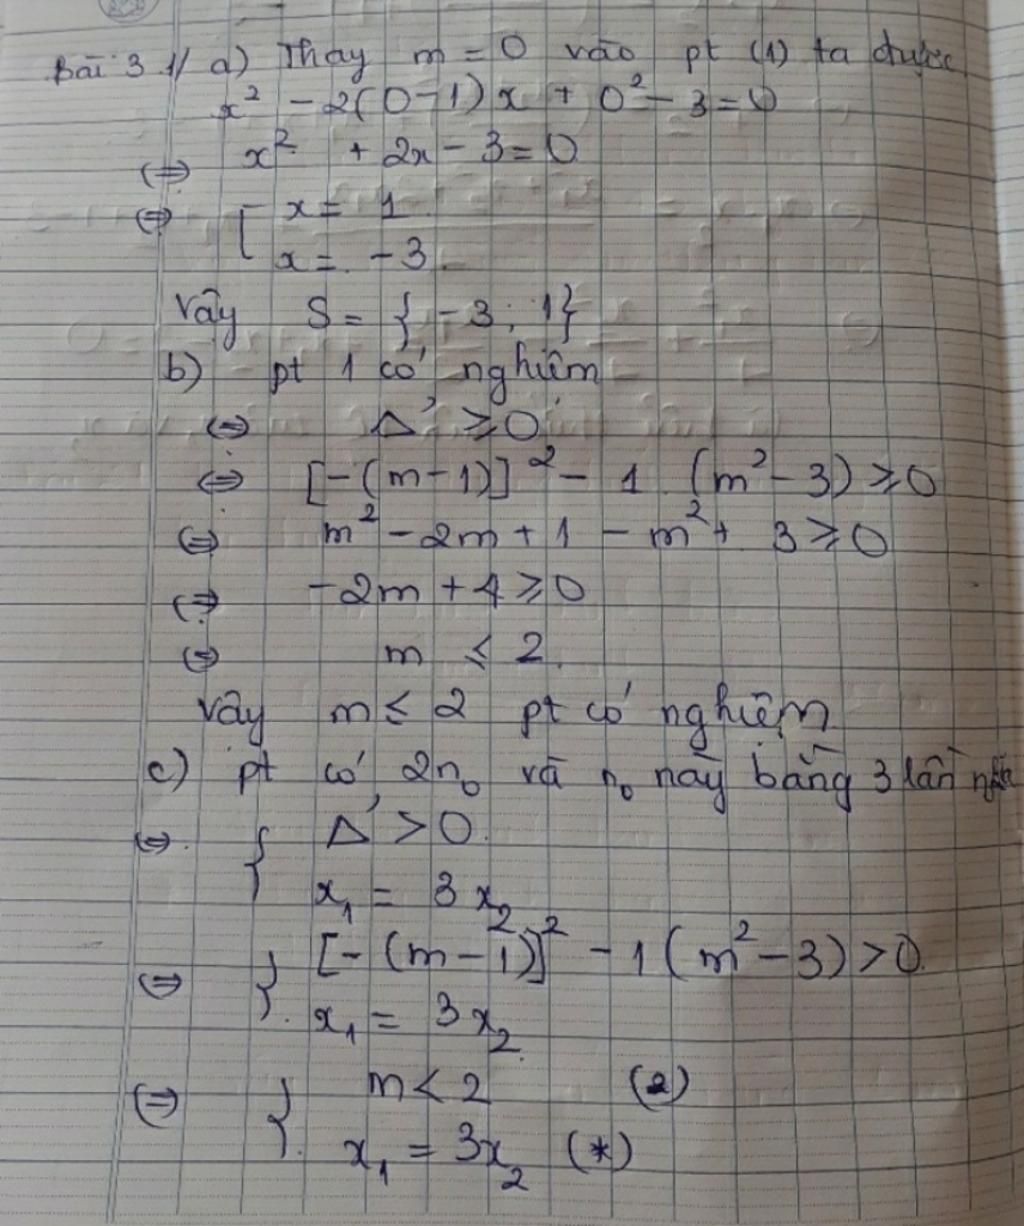 Bài 3 1/ a) Thay m = 0 vào pt (1) ta được
x² - 2(0-1)x + 0² - 3 = 0
⇔ x² + 2x - 3 = 0
⇔ [ x = 1
x = -3
Vậy S = { -3 ; 1}
b) pt 1 có nghiệm
⇔ Δ' ≥ 0
⇔ [-(m-1)]² - 1 (m² - 3) ≥ 0
⇔ m² - 2m + 1 - m² + 3 ≥ 0
⇔ -2m + 4 ≥ 0
⇔ m ≤ 2
Vậy m ≤ 2 pt có nghiệm
c) pt có 2n₀ và n₀ này bằng 3 lần
⇔ { Δ' > 0
x₁ = 3x₂
⇔ { [-(m-1)]² - 1(m² - 3) > 0
x₁ = 3x₂
⇔ { m < 2 (2)
x₁ = 3x₂ (*)